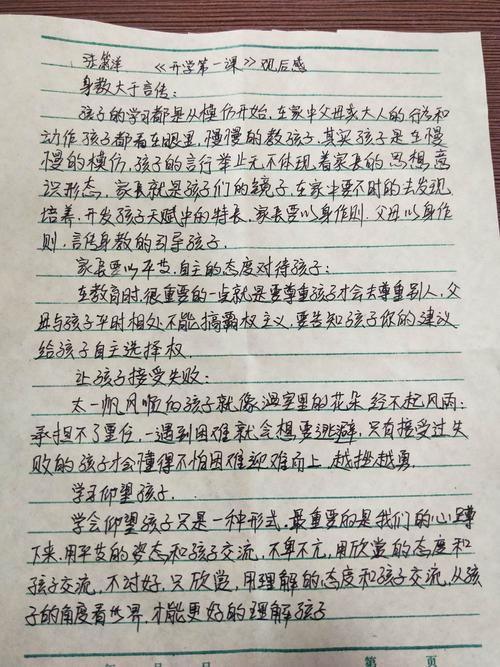 《开学第一课》观后感
身教大于言传:
孩子的学习都是从模仿开始,在家中父母亲大人的行为和
动作孩子都看在眼里,慢慢的教孩子,其实孩子是在慢
慢的模仿,孩子的言行举止无不体现着家长的思想,意
识形态,家长就是孩子们的镜子,在家中要不时的去发现
培养,开发孩子天赋中的特长,家长要以身作则.父母以身作
则,言传身教的引导孩子.
家长要以平等,自主的态度对待孩子:
在教育时,很重要的一点就是要尊重孩子才会去尊重别人,父
母与孩子平时相处不能搞霸权主义,要告知孩子你的建议
给孩子自主选择权.
让孩子接受失败:
太一帆风顺的孩子就像温室里的花朵经不起风雨;
承担不了重任,一遇到困难就会想要逃避,只有接受过失
败的孩子才会懂得不怕困难迎难而上,越挫越勇.
学习仰望孩子.
学会仰望孩子只是一种形式,最重要的是我们的心蹲
下来,用平等的姿态和孩子交流,不卑不亢,用欣赏的态度和
孩子交流,不讨好,只欣赏,用理解的态度和孩子交流,从孩
子的角度看世界,才能更好的理解孩子
年 月 日 第 页